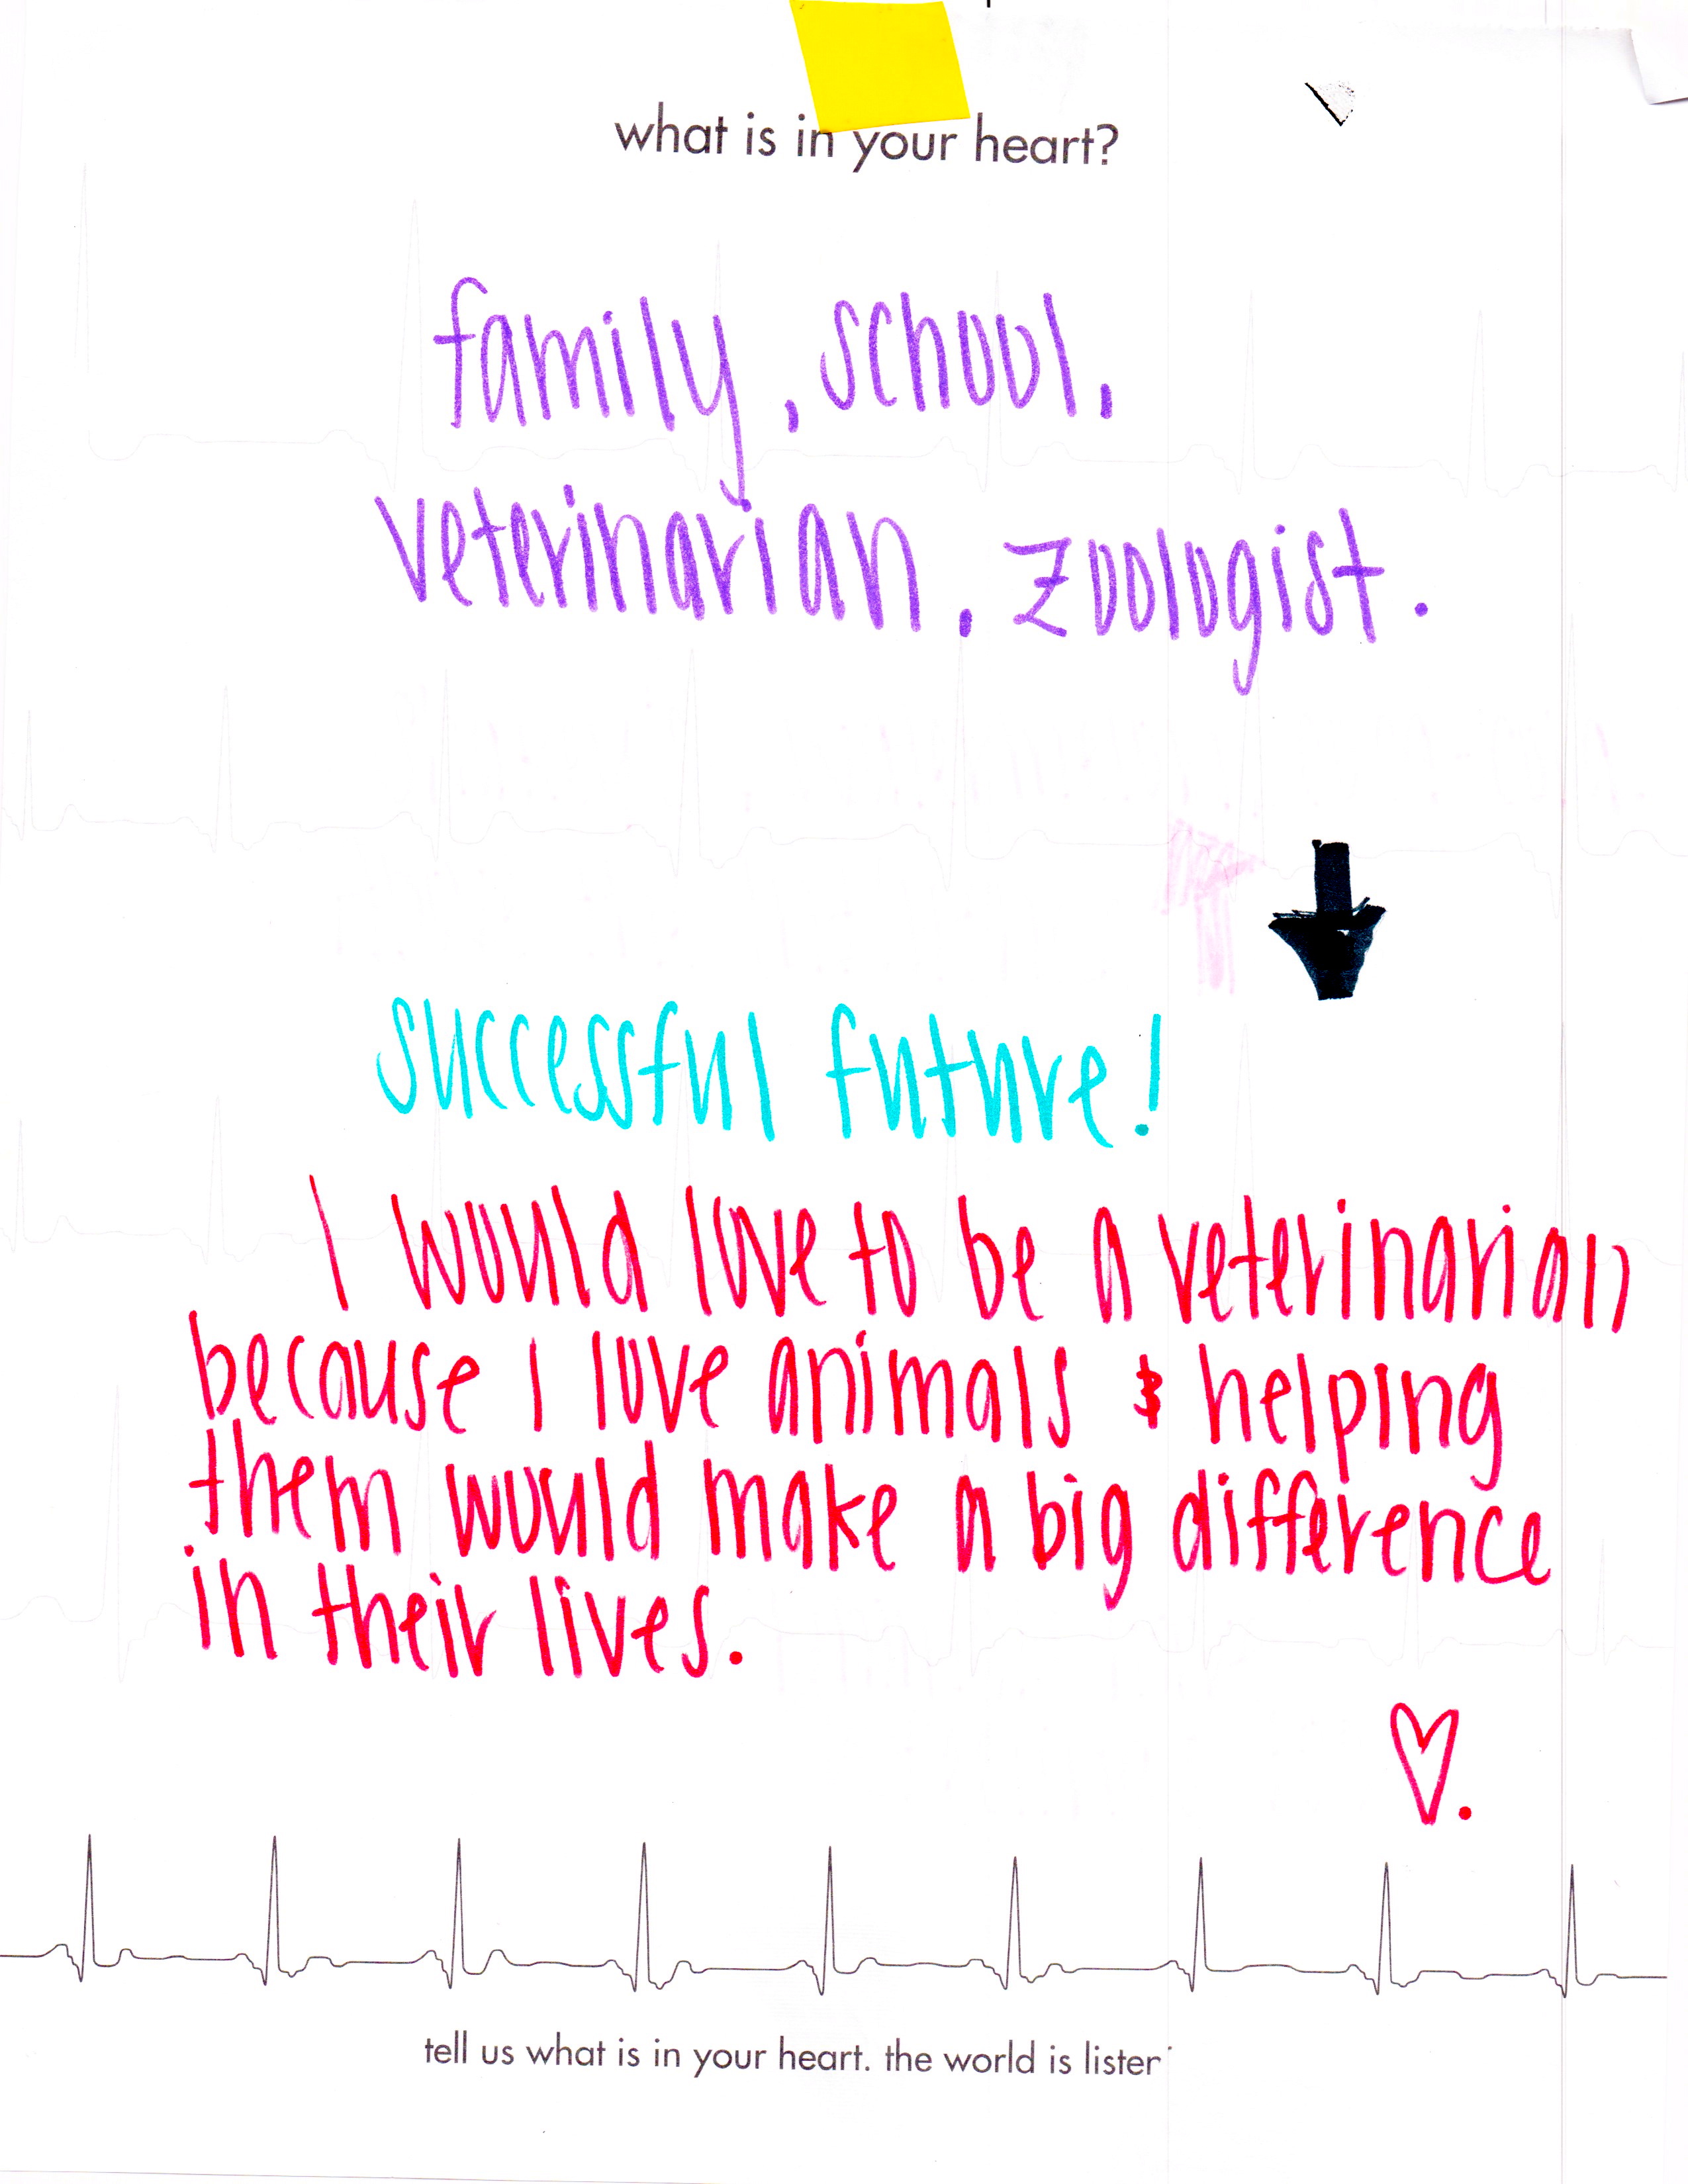 what is in your heart?
family, school,
veterinarian, zoologist.
successful future!
I would love to be a veterinarian
because I love animals & helping
them would make a big difference
in their lives.
tell us what is in your heart. the world is